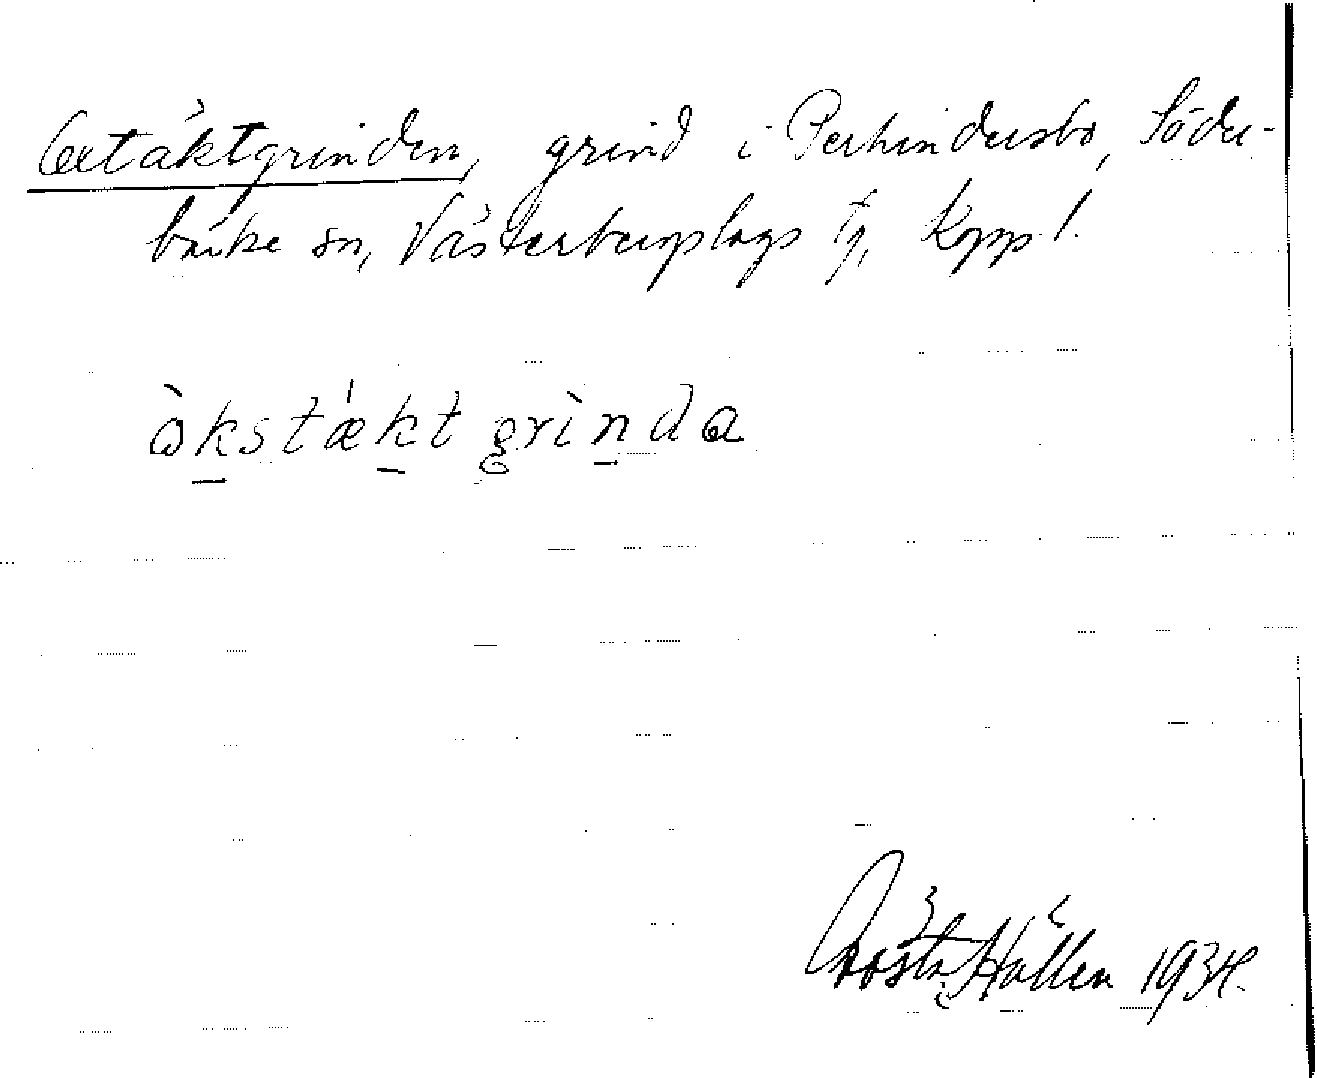 Oxtäktgrinden, grind i Perhindersbo, Söder-
bärke sn, Västerbergslags fg, Kopp l.
òkstǽktgrìnda
Gösta Hallén 1934.